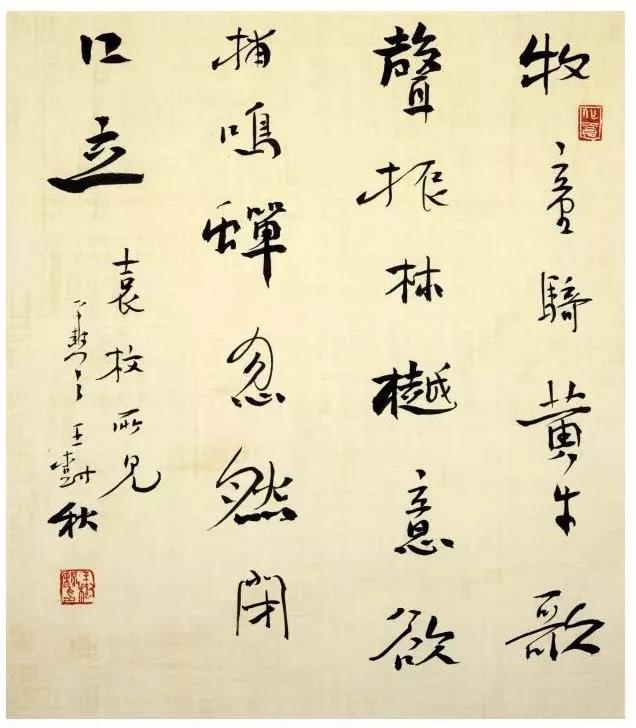 牧童騎黄牛歌
聲振林樾意欲
捕鳴蟬忽然閉
口立
袁枚所見
王樹秋